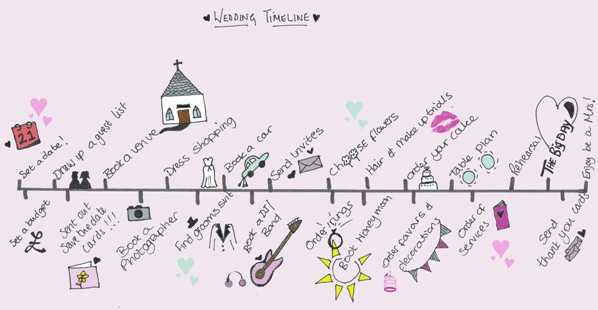 WEDDING TIMELINE
21
Set a date!
Draw up a guest list
Book a venue
Dress shopping
Book a car
Send invites
Choose flowers
Hair & make up trials
Order
your cake
Table plan
Rehearsal
THE BIG DAY
Enjoy be a Mrs!
Set a budget
Sent out
Save the date
Cards!!!!
Book a
Photographer
Find grooms suit
Book a DJ/
Band
Order rings
Book Honeymoon
Order favours &
decorations
Order of
services
Send
thank you cards